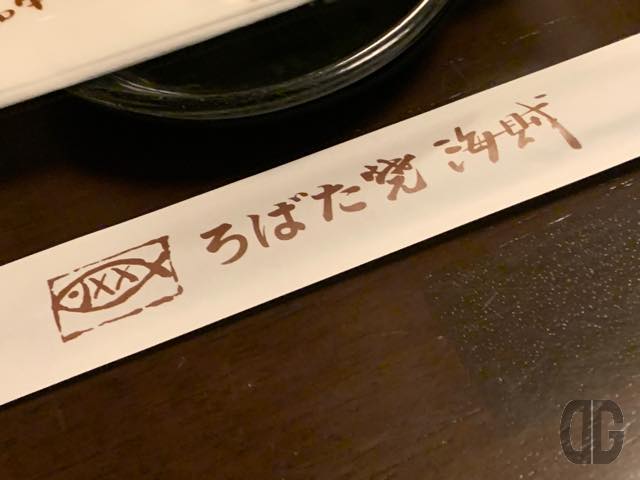 ろばた焼 海賊
DG